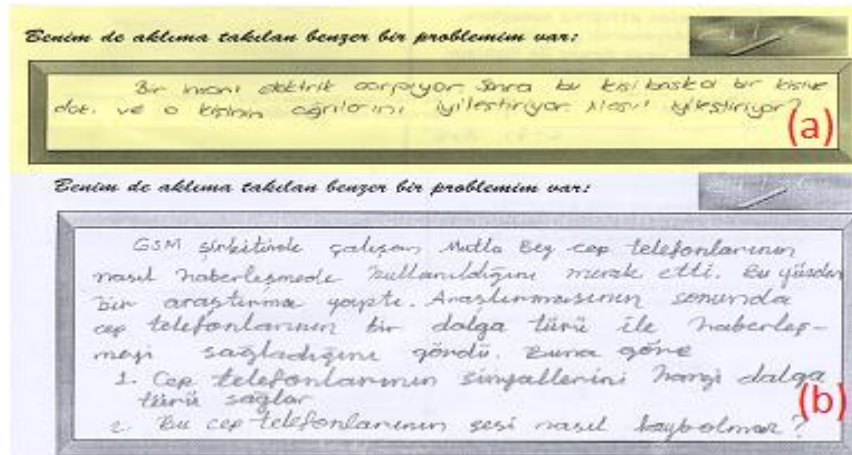 Benim de aklıma takılan benzer bir problemim var:
Bir insanı elektrik çarpıyor. Sonra bu kişi başka bir kişiye
dok. ve o kişinin ağrılarını iyileştiriyor. Nasıl iyileştiriyor?
(a)
Benim de aklıma takılan benzer bir problemim var:
GSM şirketinde çalışan Mutlu Bey cep telefonlarının
nasıl haberleşmede kullanıldığını merak etti. Bu yüzden
bir araştırma yaptı. Araştırmasının sonunda
cep telefonlarının bir dalga türü ile haberleş-
meyi sağladığını gördü. Buna göre
1. Cep telefonlarının sinyallerini hangi dalga
türü sağlar
(b)
2. Bu cep telefonlarının sesi nasıl kaybolmaz?